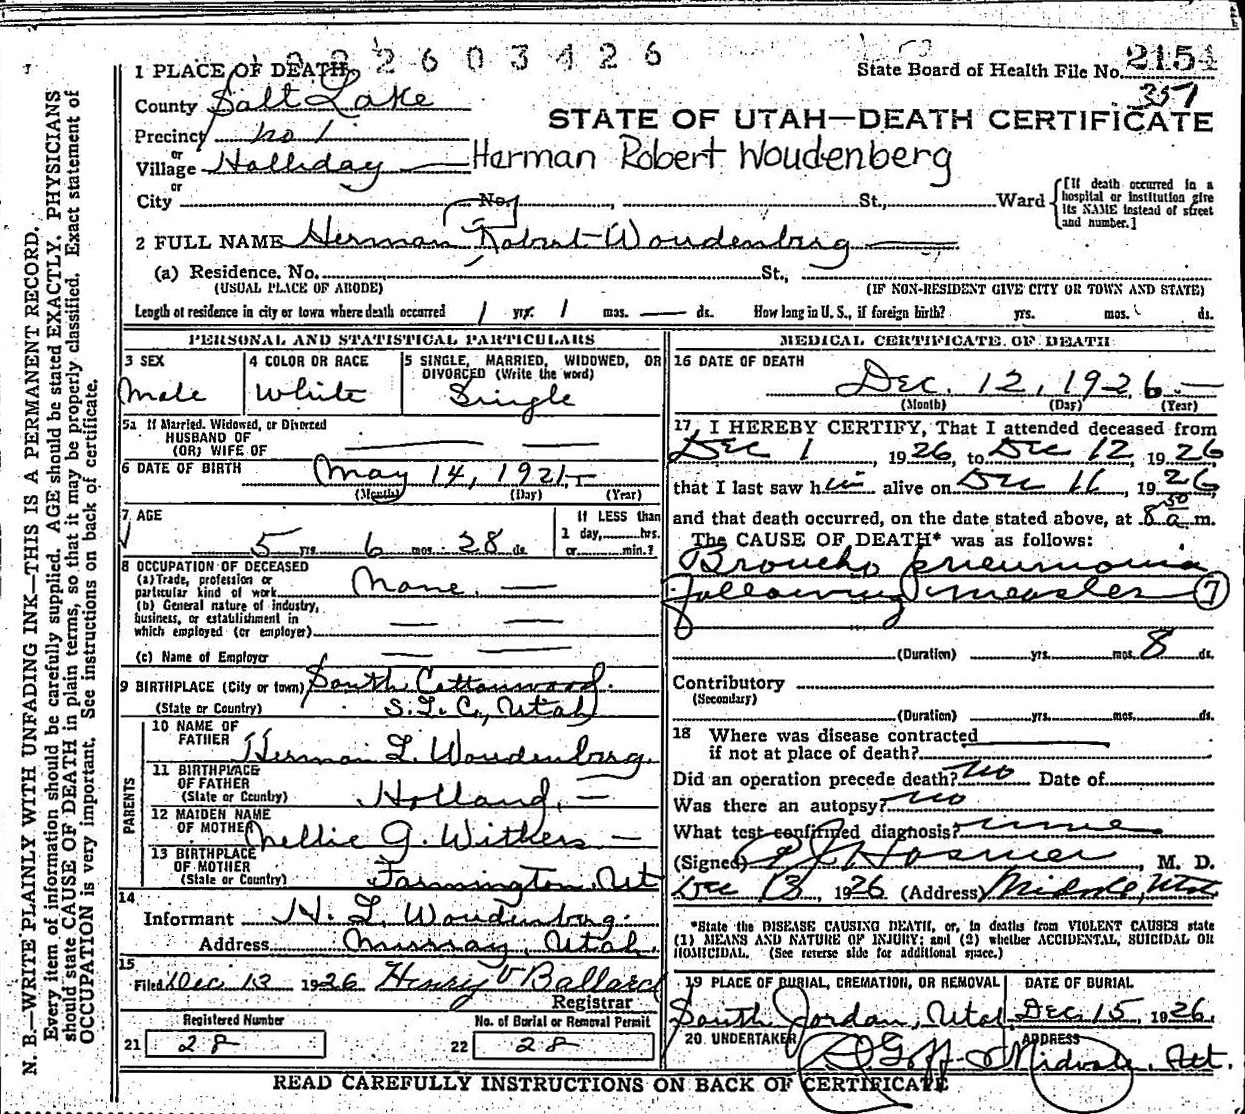 2603426
State Board of Health File No. 2154
357
1 PLACE OF DEATH
County Salt Lake
STATE OF UTAH—DEATH CERTIFICATE
Precinct No 1
or
Village Holliday Herman Robert Woudenberg
or
City No. , St., Ward [If death occurred in a hospital or institution give its NAME instead of street and number.]
2 FULL NAME Herman Robert Woudenberg
(a) Residence. No. St.,
(USUAL PLACE OF ABODE) (IF NON-RESIDENT GIVE CITY OR TOWN AND STATE)
Length of residence in city or town where death occurred 1 yrs. 1 mos. — ds. How long in U. S., if foreign birth? yrs. mos. ds.
PERSONAL AND STATISTICAL PARTICULARS
3 SEX
Male
4 COLOR OR RACE
White
5 SINGLE, MARRIED, WIDOWED, OR
DIVORCED (Write the word)
Single
5a If Married, Widowed, or Divorced
HUSBAND OF
(OR) WIFE OF
6 DATE OF BIRTH May 14, 1921
(Month) (Day) (Year)
7 AGE
5 yrs. 6 mos. 28 ds.
If LESS than
1 day, hrs.
or min.?
8 OCCUPATION OF DECEASED
(a) Trade, profession or
particular kind of work None.
(b) General nature of industry,
business, or establishment in
which employed (or employer)
(c) Name of Employer
9 BIRTHPLACE (City or town) South Cottonwood.
(State or Country) S.L.C., Utah
PARENTS
10 NAME OF
FATHER Herman L. Woudenberg.
11 BIRTHPLACE
OF FATHER
(State or Country) Holland,
12 MAIDEN NAME
OF MOTHER Nellie G. Withers
13 BIRTHPLACE
OF MOTHER
(State or Country) Farmington, Ut
14
Informant H. L. Woudenberg.
Address Murray, Utah.
15
Filed Dec 13 1926 Henry V Ballard
Registrar
Registered Number No. of Burial or Removal Permit
21 28 22 28
MEDICAL CERTIFICATE OF DEATH
16 DATE OF DEATH
Dec. 12, 1926
(Month) (Day) (Year)
17, I HEREBY CERTIFY, That I attended deceased from
Dec 1, 1926, to Dec 12, 1926
that I last saw him alive on Dec 11, 1926,
and that death occurred, on the date stated above, at 8 50 a.m.
The CAUSE OF DEATH* was as follows:
Broncho pneumonia
following measles 7
(Duration) yrs. mos. 8 ds.
Contributory
(Secondary)
(Duration) yrs. mos. ds.
18 Where was disease contracted
if not at place of death?
Did an operation precede death? no Date of
Was there an autopsy? no
What test confirmed diagnosis?
(Signed) Hosmer, M. D.
Dec 13, 1926 (Address) Midvale, Utah
*State the DISEASE CAUSING DEATH, or, in deaths from VIOLENT CAUSES state
(1) MEANS AND NATURE OF INJURY; and (2) whether ACCIDENTAL, SUICIDAL OR
HOMICIDAL. (See reverse side for additional space.)
19 PLACE OF BURIAL, CREMATION, OR REMOVAL DATE OF BURIAL
South Jordan, Utah Dec. 15, 1926.
20 UNDERTAKER ADDRESS
Goff Midvale, Ut.
READ CAREFULLY INSTRUCTIONS ON BACK OF CERTIFICATE
N. B.—WRITE PLAINLY WITH UNFADING INK—THIS IS A PERMANENT RECORD.
Every item of information should be carefully supplied. AGE should be stated EXACTLY. PHYSICIANS
should state CAUSE OF DEATH in plain terms, so that it may be properly classified. Exact statement of
OCCUPATION is very important. See instructions on back of certificate.